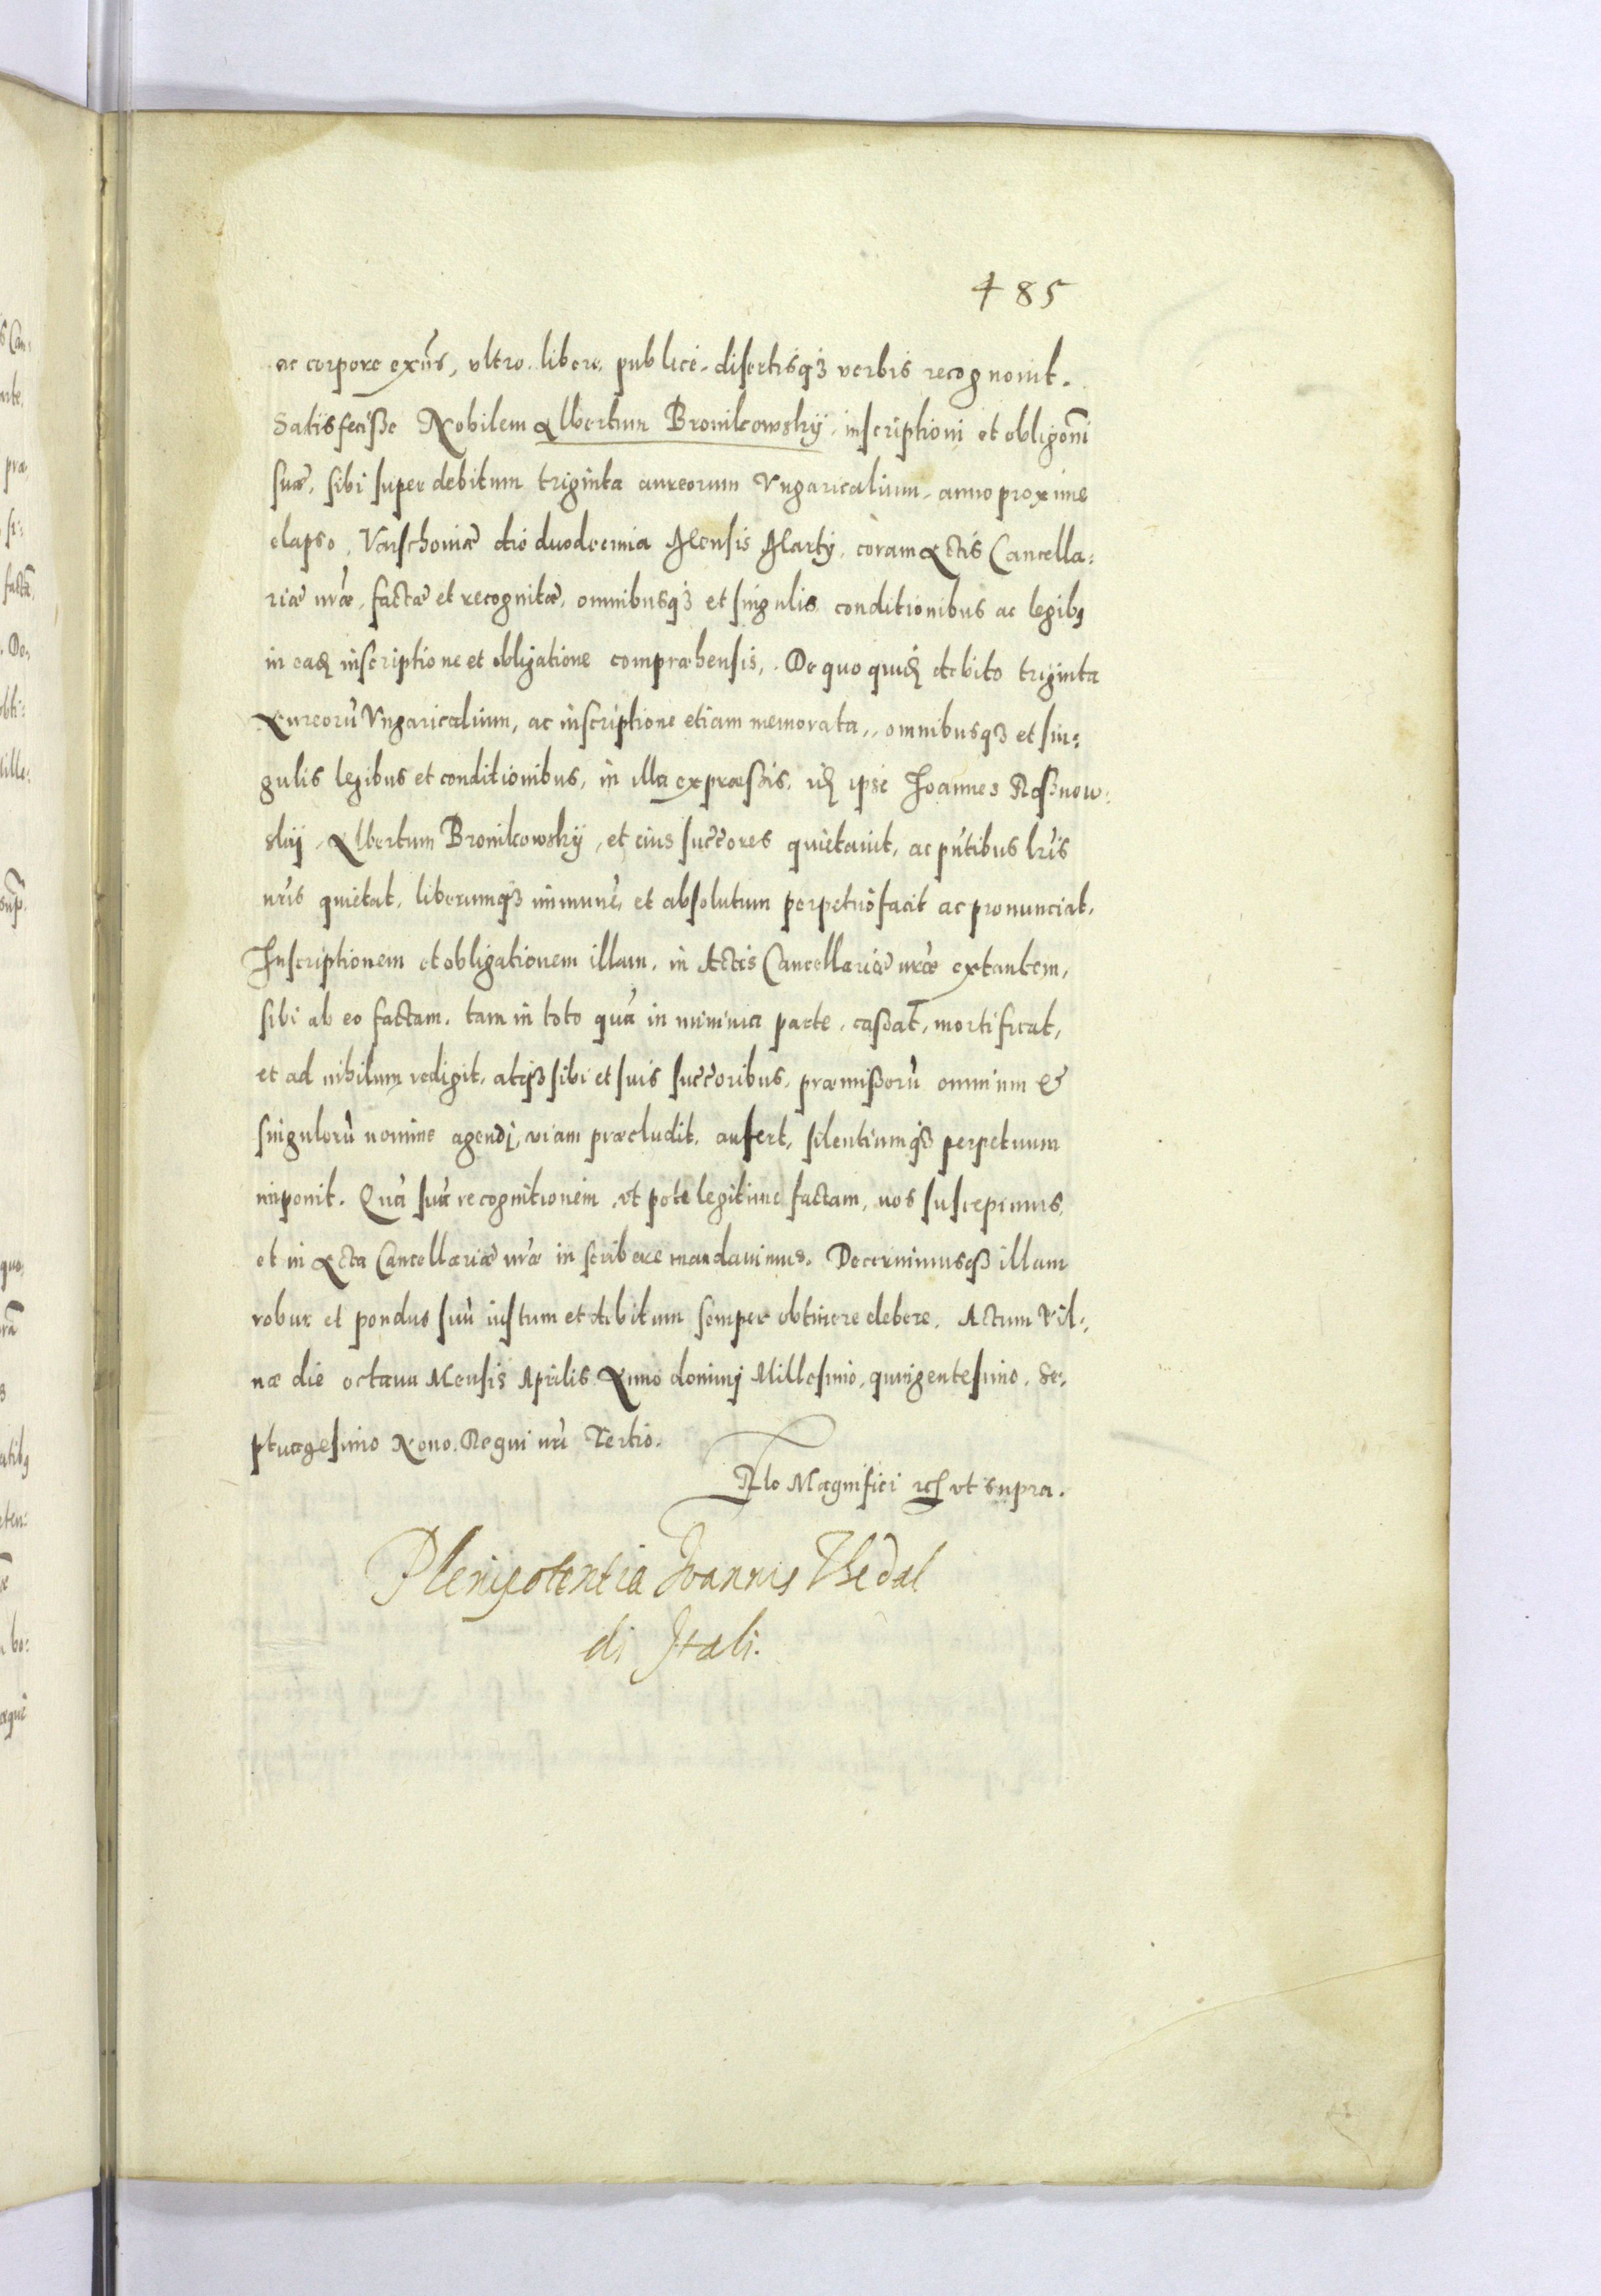 485
ac corpore exn̄s, vltro libere, publicè disertisqꝫ verbis recognouit.
Satisfecisse Nobilem Albertum Bronikowskÿ, inscriptioni et obligōni
suæ, sibi super debitum triginta aureorum Vngaricalium, anno proxime
elapso, Varschoniæ die duodecima Mensis Martÿ, coram Actis Cancella:
riæ nr̄æ, factæ et recognitæ, omnibusqꝫ et singulis conditionibus ac legibꝫ
in eadꝫ inscriptione et obligatione compræhensis, De quo quidꝫ debito triginta
Aureorū Vngaricalium, ac inscriptione etiam memorata, omnibusqꝫ et sin:
gulis legibus et conditionibus, in illa expræssis, idꝫ ipse Joannes Rosnow:
skij Albertum Bronikowskÿ, et eius succ̄ores quietauit, ac pn̄tibus lr̄is
nr̄is quietat, liberumqꝫ immunē et absolutum perpetuò facit ac pronunciat,
Inscriptionem et obligationem illam, in Actis Cancellariæ nr̄æ extantem,
sibi ab eo factam, tam in toto quā in minima parte, cassat, mortificat,
et ad nihilum redigit, atqꝫ sibi et suis succ̄oribus, præmissorū omnium &
singulorū nomine agendi, viam præcludit, aufert, silentiumqꝫ perpetuum
imponit. Quā suā recognitionem, vt pote legitime factam, nos suscepimus,
et in Acta Cancellariæ nr̄æ inscribere mandauimus. Decernimusqꝫ illam
robur et pondus suū iustum et debitum semper obtinere debere. Actum Vil:
næ die octaua Mensis Aprilis Anno dominj Millesimo, quingentesimo, Se:
ptuagesimo Nono. Regni nr̄i Tertio.
Rlo Magnifici &c vt supra.
Plenipotentia Joannis Thedal
di Itali.